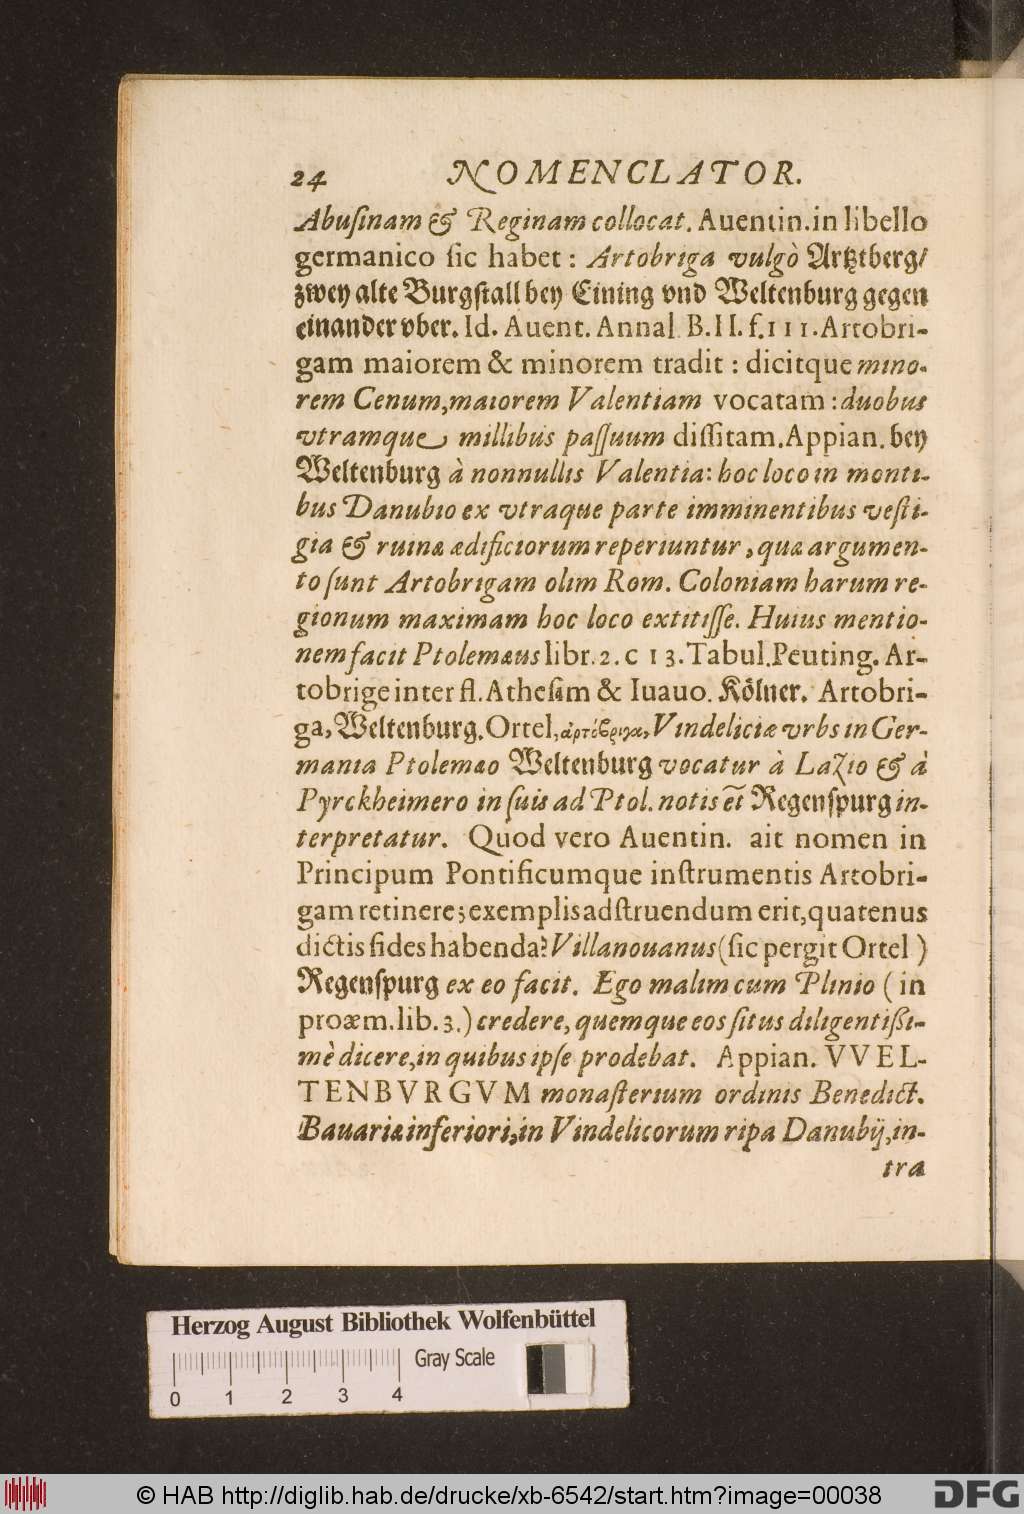 24 NOMENCLATOR.
Abuſinam & Reginam collocat. Auentin. in libello
germanico ſic habet : Artobriga vulgò Artztberg/
zwey alte Burgſtall bey Eining vnd Weltenburg gegen
einander vber. Id. Auent. Annal. B. II. f. 111. Artobri-
gam maiorem & minorem tradit : dicitque mino-
rem Cenum, maiorem Valentiam vocatam : duobus
vtramque millibus paſſuum diſſitam. Appian. bey
Weltenburg à nonnullis Valentia: hoc loco in monti-
bus Danubio ex vtraque parte imminentibus veſti-
gia & ruinæ ædificiorum reperiuntur, quæ argumen-
to ſunt Artobrigam olim Rom. Coloniam harum re-
gionum maximam hoc loco extitiſſe. Huius mentio-
nem facit Ptolemæus libr. 2. c 13. Tabul. Peuting. Ar-
tobrige inter fl. Atheſim & Iuauo. Kölner. Artobri-
ga, Weltenburg. Ortel, ἀρτόβριγα, Vindeliciæ vrbs in Ger-
mania Ptolemæo Weltenburg vocatur à Lazio & à
Pyrckheimero in ſuis ad Ptol. notis et̃ Regenſpurg in-
terpretatur. Quod vero Auentin. ait nomen in
Principum Pontificumque inſtrumentis Artobri-
gam retinere; exemplis adſtruendum erit, quatenus
dictis fides habenda? Villanouanus (ſic pergit Ortel )
Regenſpurg ex eo facit. Ego malim cum Plinio ( in
proæm. lib. 3.) credere, quemque eos ſitus diligentißi-
mè dicere, in quibus ipſe prodebat. Appian. VVEL-
TENBVRGVM monaſterium ordinis Benedict.
Bauariæ inferiori, in Vindelicorum ripa Danubij, in-
tra
Herzog August Bibliothek Wolfenbüttel
Gray Scale
0 1 2 3 4
© HAB http://diglib.hab.de/drucke/xb-6542/start.htm?image=00038
DFG